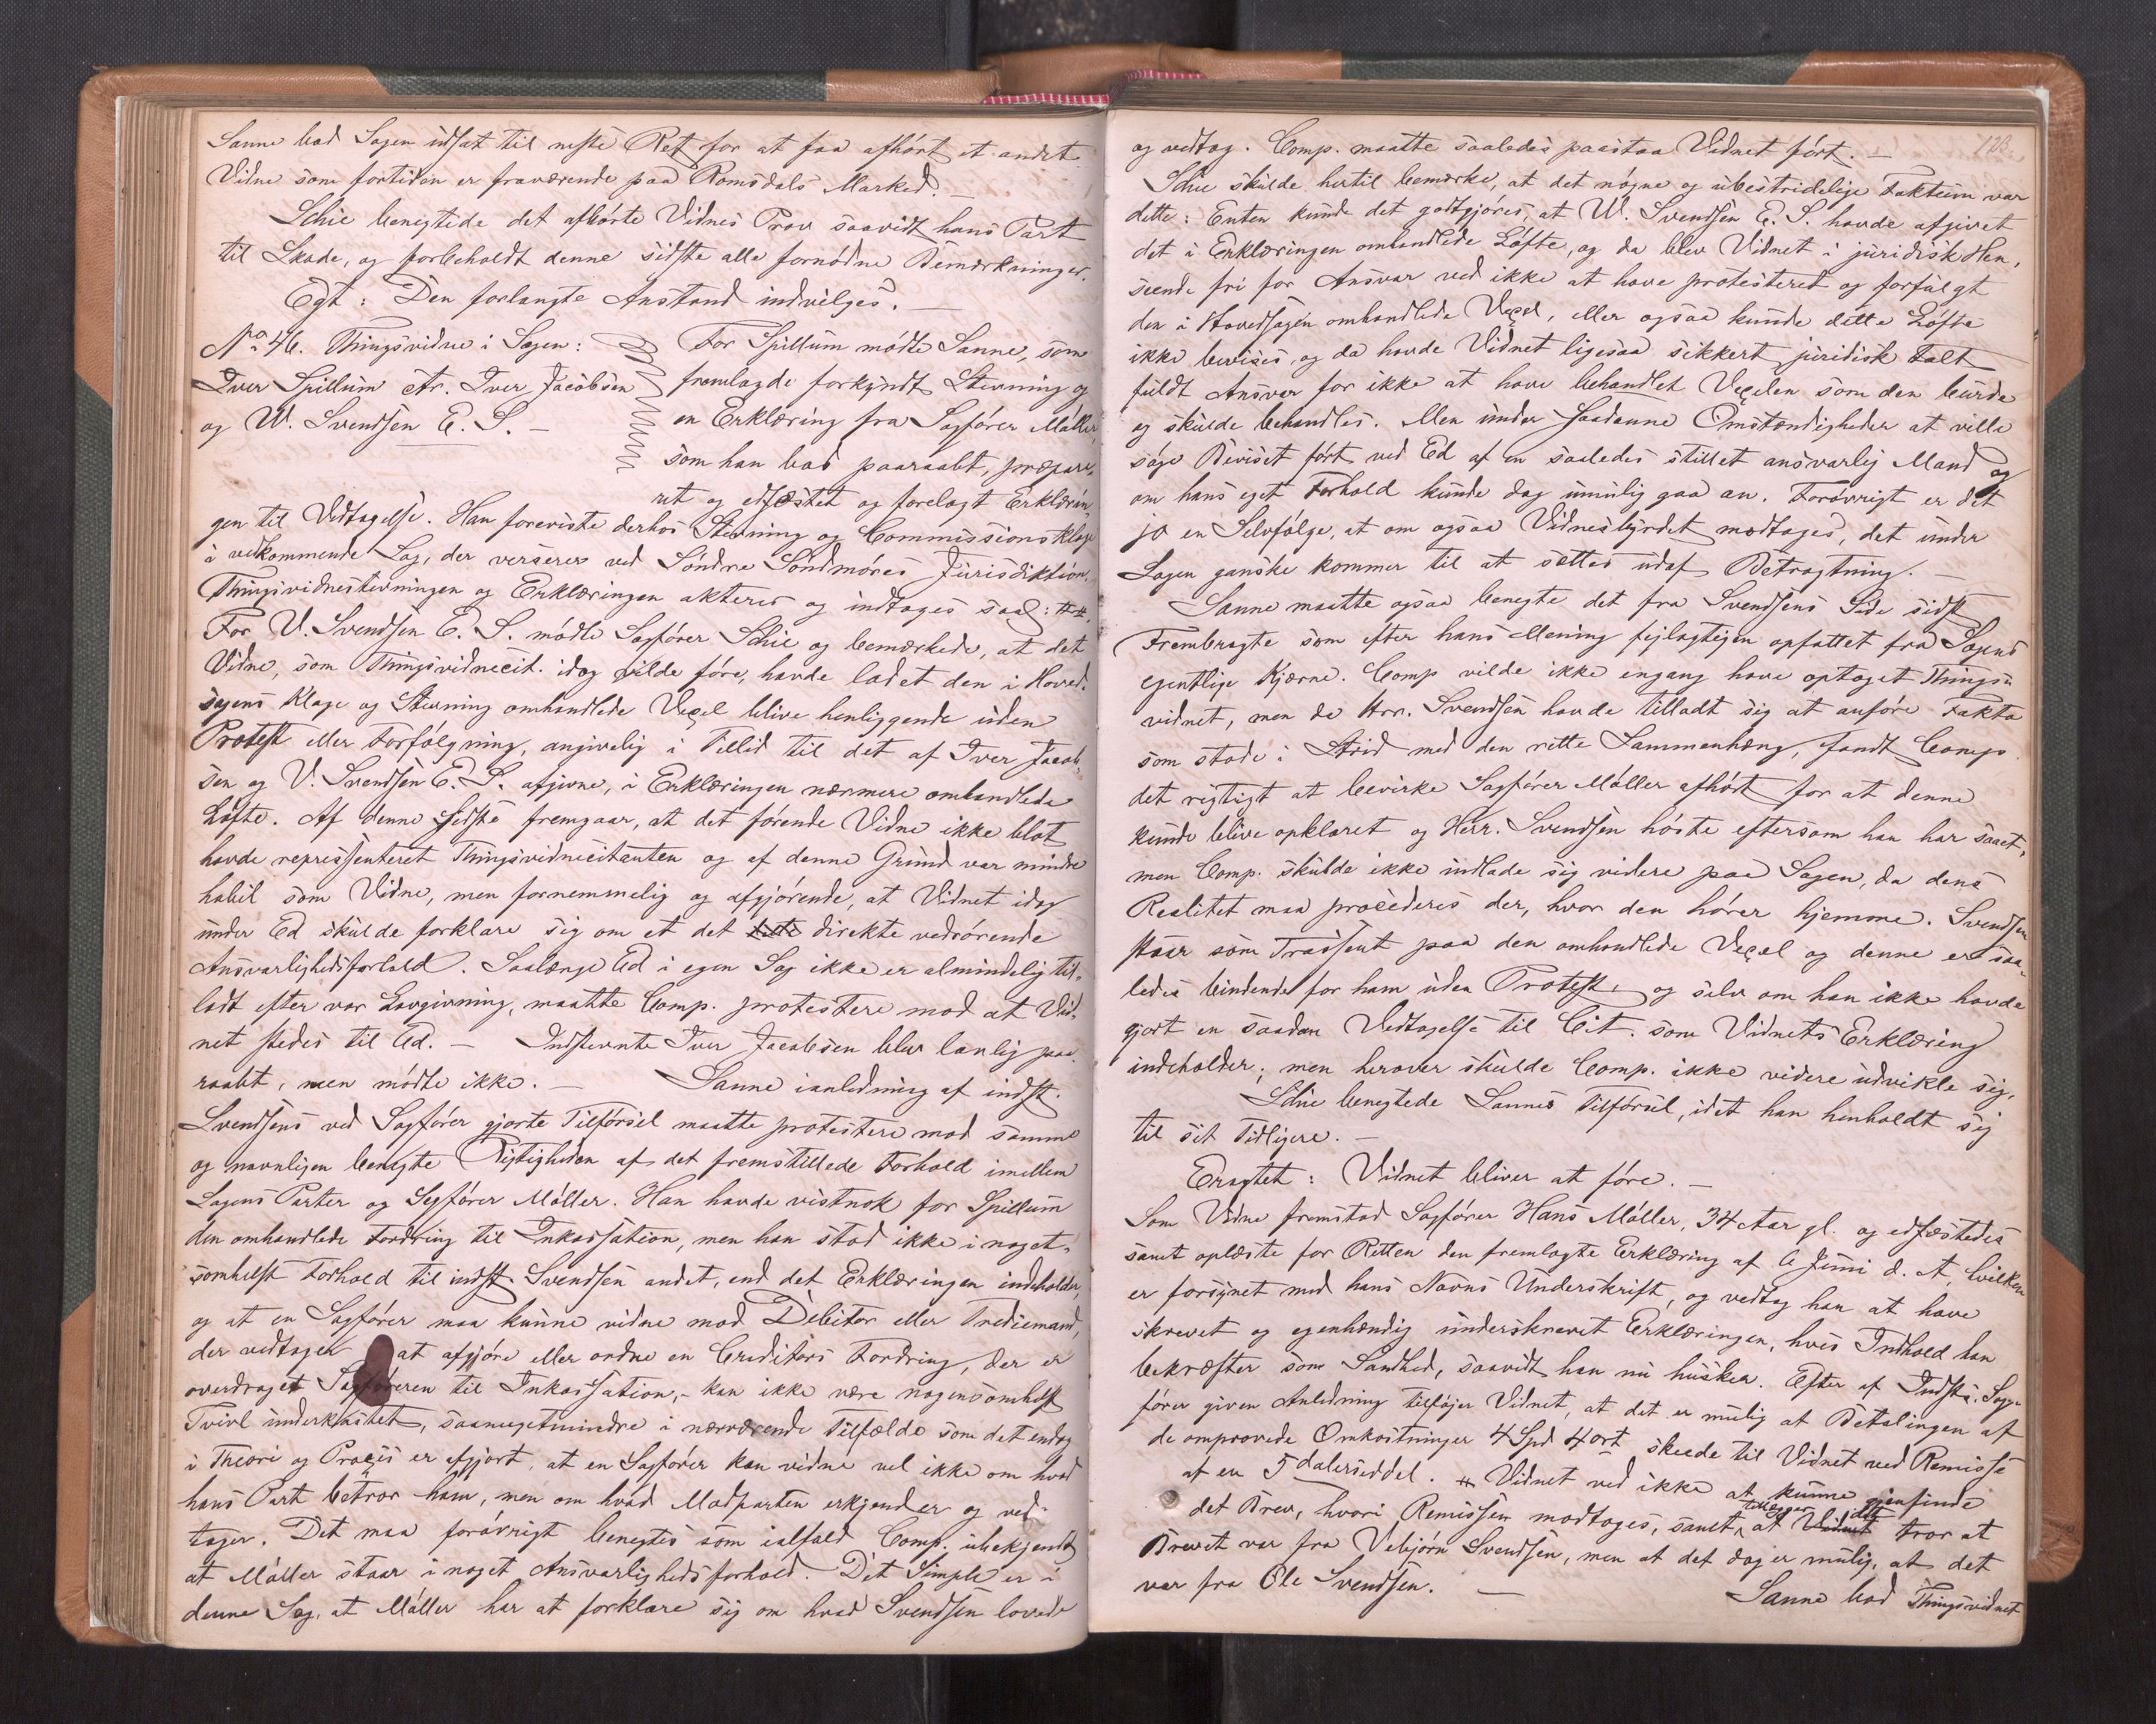 Sanne bad Sagen udsat til neste Ret for at faa afhört et andet
Vidne som fortiden er fraværende paa Romsdals Marked. —
Schie benegtede det afhörte Vidnes Prov saavidt hans Part
til Skade, og forbeholdt denne sidste alle fornödne Bemærkninger.
Egt: Den forlangte Anstand indvilges. —
No 46. Thingsvidne i Sagen:
Iver Spillum ctr. Iver Jacobsen
og W. Svendsen E. S. —
For Spillum mödte Sanne, som
fremlagde forkyndt Stevning og
en Erklæring fra Sagförer Möller,
som han bad paaraabt, præpare-
ret og edfæstet og forelagt Erklærin-
gen til Vedtagelse. Han foreviste derhos Stevning og Commissionsklage
i vedkommende Sag, der verserer ved Söndre Söndmöres Jurisdiktion.
Thingsvidnestevningen og Erklæringen akteres og indtages saal: ##.
For V. Svendsen E. S. mödte Sagförer Schie og bemærkede, at det
Vidne, som Thingsvidnecit. idag vilde före, havde ladet den i Hoved-
sagens Klage og Stevning omhandlede Vexel blive henliggende uden
Protest eller Forfölgning, angivelig i Tillid til det af Iver Jacob-
sen og V. Svendsen E. S. afgivne, i Erklæringen nærmere omhandlede
Löfte. Af denne sidste fremgaar, at det förende Vidne ikke blot
havde repressenteret Thingsvidnecitanten og af denne Grund var mindre
habil som Vidne, men fornemmelig og afgjörende, at Vidnet idag
under Ed skulde forklare sig om et det dette direkte vedrörende
Ansvarlighedsforhold. Saalænge Ed i egen Sag ikke er almindelig til-
ladt efter vor Lovgivning, maatte Comp. protestere mod at Vid-
net stedes til Ed. — Indstevnte Iver Jacobsen blev lovlig paa-
raabt, men mödte ikke. — Sanne i anledning af indst.
Svendsens ved Sagförer gjorte Tilförsel maatte protestere mod samme
og navnligen benegte Rigtigheden af det fremstillede Forhold imellem
Sagens Parter og Sagförer Möller. Han havde vistnok for Spillum
den omhandlede Fordring til Inkassation, men han stod ikke i noget-
somhelst Forhold til indst. Svendsen andet, end det Erklæringen indeholder,
og at en Sagförer maa kunne vidne mod Debitor eller Trediemand,
der vedtager at afgjöre eller ordne en Creditors Fordring, der er
overdraget Sagföreren til Inkassation, – kan ikke være nogensomhelst
Tvivl underkastet, saameget mindre i nærværende Tilfælde som det endog
i Theori og Praxis er afgjort, at en Sagförer kan vidne vel ikke om hvad
hans Part betror ham, men om hvad Modparten erkjender og ved-
tager. Det maa forövrigt benegtes som ialfald Comp. ubekjendt
at Möller staar i noget Ansvarlighedsforhold. Det Simple er i
denne Sag, at Möller har at forklare sig om hvad Svendsen lovede
123.
og vedtog. Comp. maatte saaledes paastaa Vidnet fört. —
Schie skulde hertil bemærke, at det nögne og ubestridelige Faktum var
dette: Enten kunde det godtgjöres, at W. Svendsen E. S. havde afgivet
det i Erklæringen omhandlede Löfte, og da blev Vidnet i juridisk Hen-
seende fri for Ansvar ved ikke at have protesteret og forfulgt
den i Hovedsagen omhandlede Vexel, eller ogsaa kunde dette Löfte
ikke bevises, og da havde Vidnet ligesaa sikkert juridisk talt
fuldt Ansvar for ikke at have behandlet Vexelen som den burde
og skulde behandles. Men under saadanne Omstændigheder at ville
söge Beviset fört ved Ed af en saaledes stillet ansvarlig Mand og
om hans eget Forhold kunde dog umulig gaa an. Forövrigt er det
jo en Selvfölge, at om ogsaa Vidnesbyrdet modtages, det under
Sagen ganske kommer til at sættes udaf Betragtning. —
Sanne maatte ogsaa benegte det fra Svendsens Side sidst
Frembragte som efter hans Mening fejlagtigen opfattet fra Sagens
egentlige Kjærne. Comp vilde ikke engang have optaget Things-
vidnet, men da Hrr. Svendsen havde tilladt sig at anföre Fakta
som stode i Strid med den rette Sammenhæng, fandt Comp.
det rigtigt at bevirke Sagförer Möller afhört for at denne
kunde blive opklaret og Herr. Svendsen höste eftersom han har saaet,
men Comp. skulde ikke indlade sig videre paa Sagen, da dens
Realitet maa procederes der, hvor den hörer hjemme. Svendsen
staar som Trassent paa den omhandlede Vexel og denne er saa-
ledes bindende for ham uden Protest, og selv om han ikke havde
gjort en saadan Vedtagelse til Cit. som Vidnets Erklæring
indeholder; men herover skulde Comp. ikke videre udvikle sig,
Schie benegtede Sannes Tilförsel, idet han henholdt sig
til sit Tidligere. —
Eragtet: Vidnet bliver at före. —
Som Vidne fremstod Sagförer Hans Möller, 34 Aar gl. og edfæstedes
samt oplæste for Retten den fremlagte Erklæring af 6 Juni d. A, hvilken
er forsynet med hans Navns Underskrift, og vedtog han at have
skrevet og egenhændig underskrevet Erklæringen, hvis Indhold han
bekræfter som Sandhed, saavidt han nu husker. Efter af Indst.s. Sag-
förer given Anledning tilföjer Vidnet, at det er mulig at Betalingen af
de omprovede Omkostninger 4 Spd 4 ort skeede til Vidnet ved Remisse
af en 5 dalerseddel. # Vidnet ved ikke at kunne gjenfinde
det Brev, hvori Remissen modtoges, samt tillægger at Vidnet det tror at
Brevet var fra Vebjörn Svendsen, men at det dog er mulig, at det
var fra Ole Svendsen. — Sanne bad Thingsvidnet